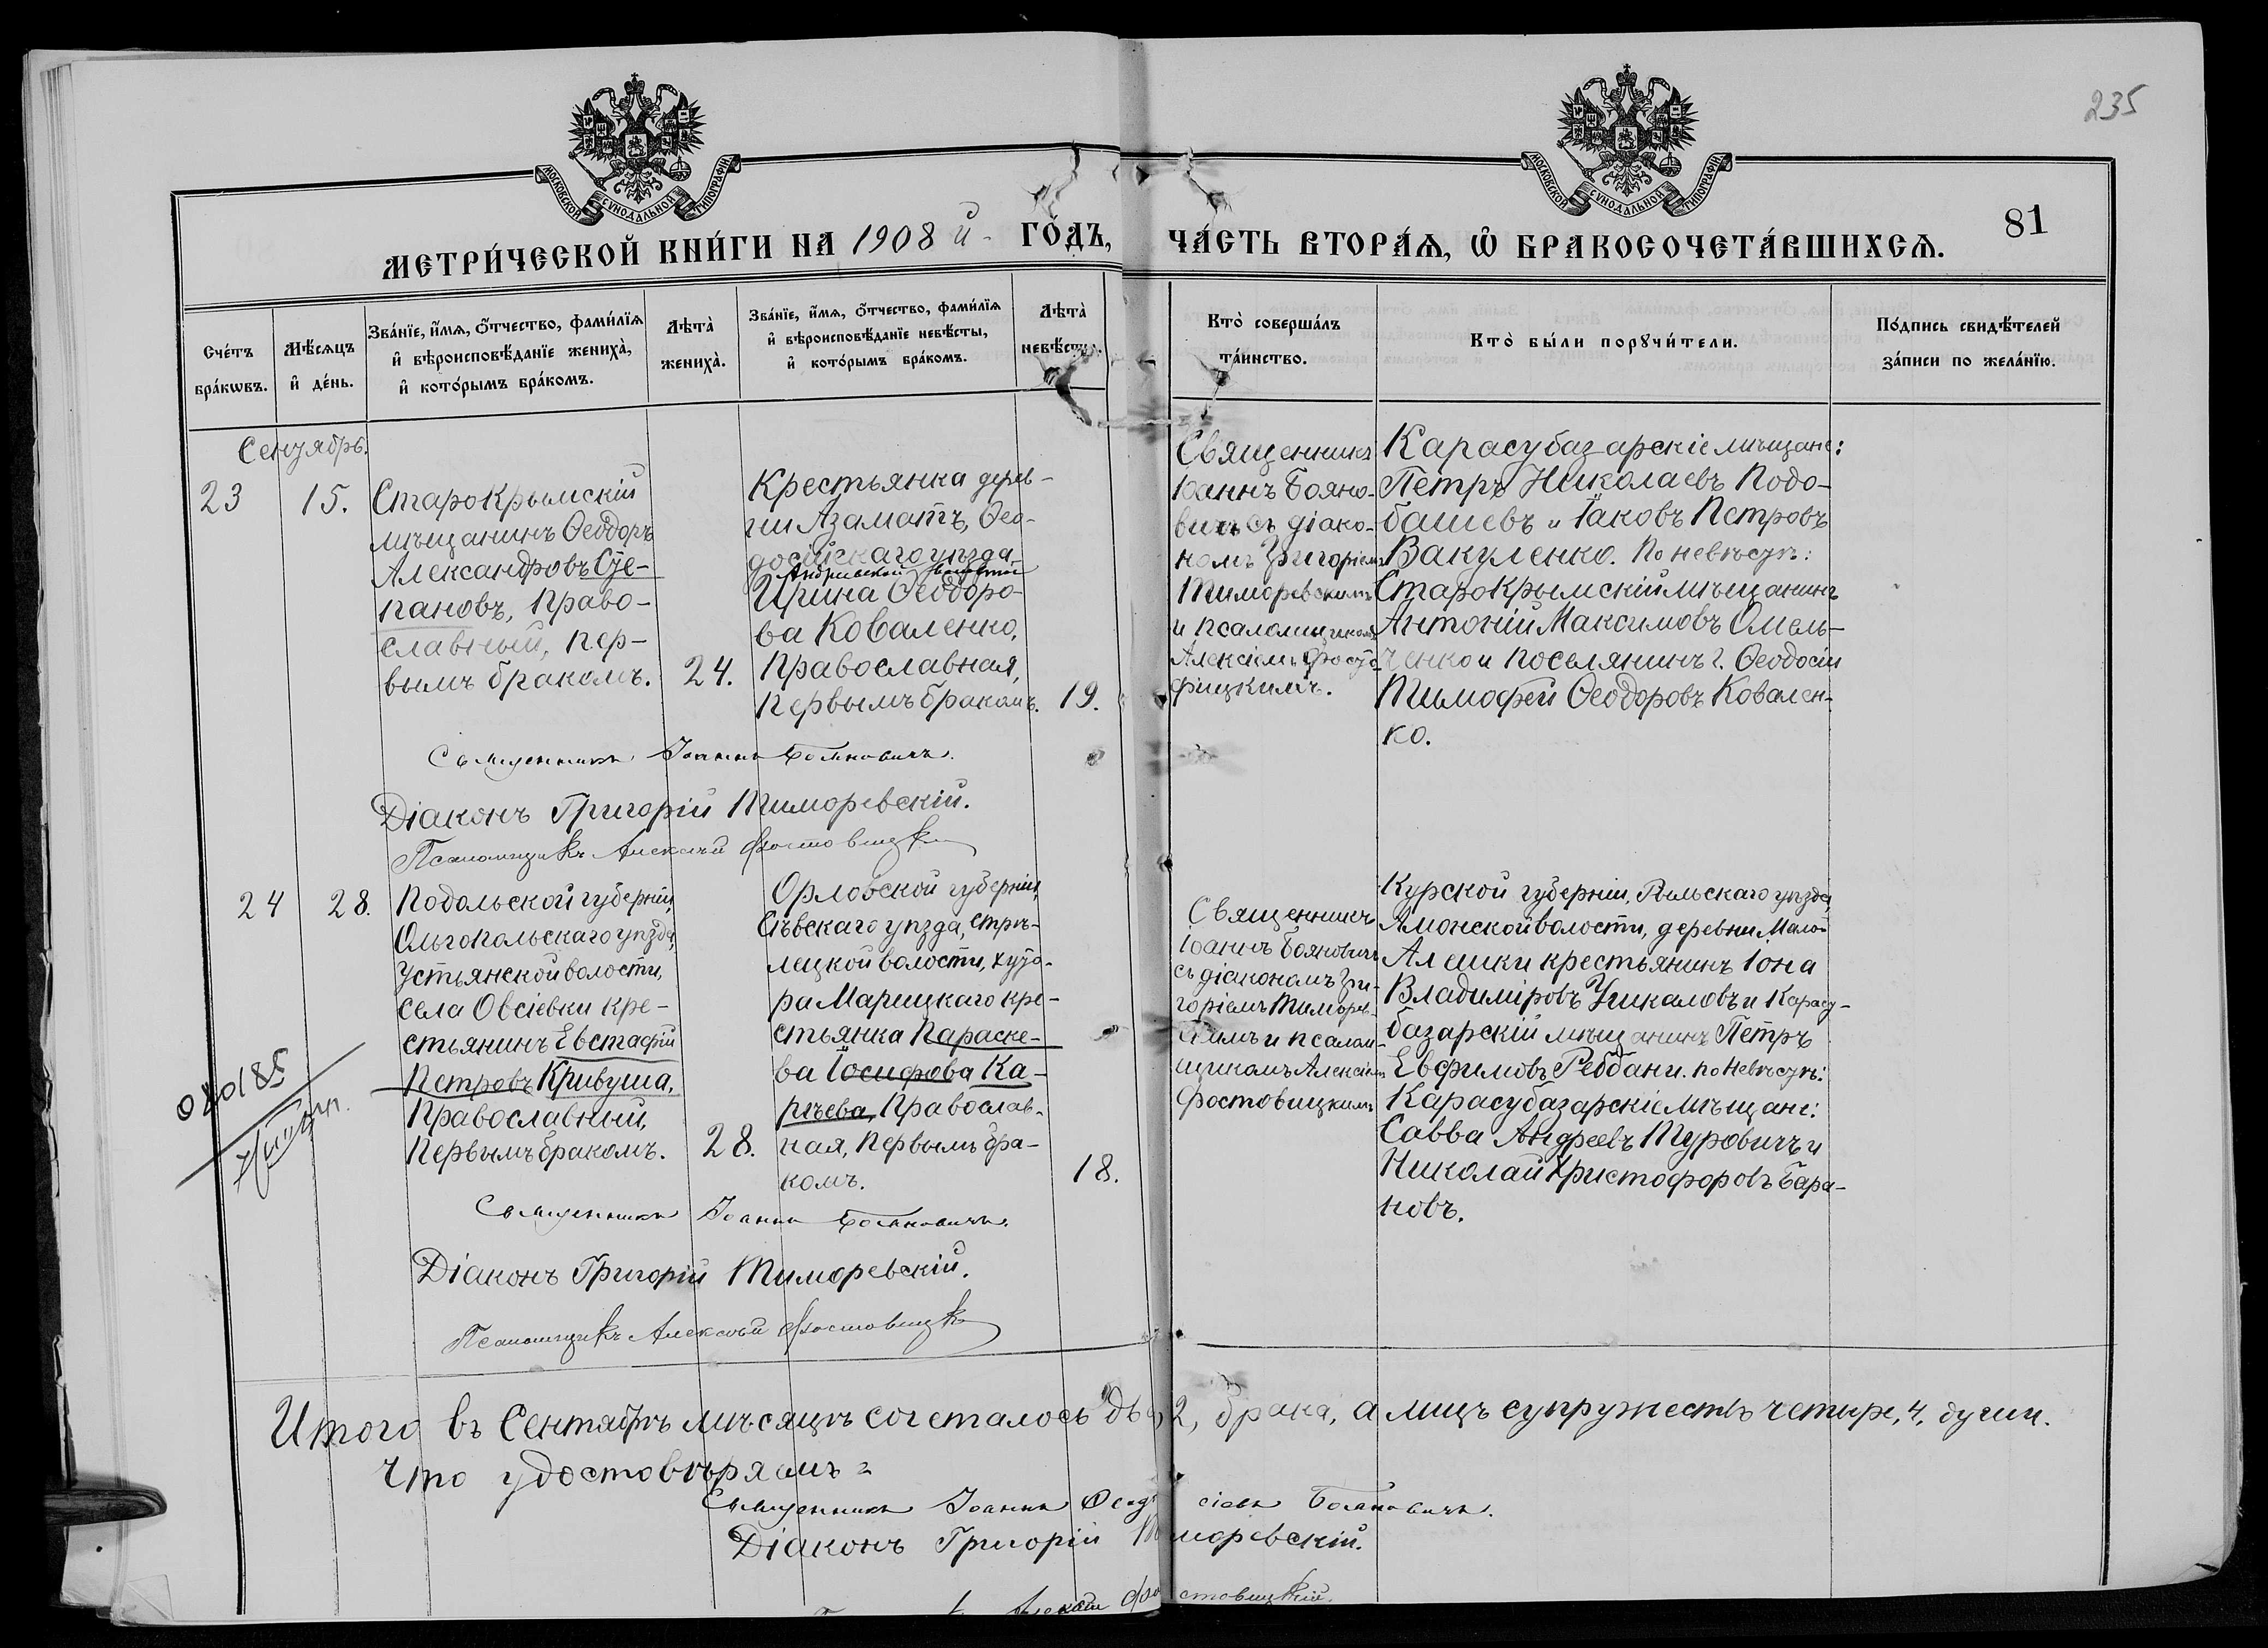 235
МОСКОВСКОЙ СѴНОДАЛЬНОЙ ТИПОГРАФІИ
МОСКОВСКОЙ СѴНОДАЛЬНОЙ ТИПОГРАФІИ
81
МЕТРИ́ЧЕСКОЙ КНИ́ГИ НА 1908 й ГО́ДЪ,
ЧА́СТЬ ВТОРА́Я, Ѡ БРАКОСОЧЕТА́ВШИХСЯ.
Сче́тъ
бра́кѡвъ.
Мѣ́сяцъ
и҆ де́нь.
Зва́нїе, и҆́мя, ѻ҆́тчество, фами́лїя
и҆ вѣроисповѣ́данїе жениха̀,
и҆ кото́рымъ бра́комъ.
Лѣта̀
жениха̀.
Зва́нїе, и҆́мя, ѻ҆́тчество, фами́лїя
и҆ вѣроисповѣ́данїе невѣ́сты,
и҆ кото́рымъ бра́комъ.
Лѣта̀
невѣ́сты.
Кто̀ соверша́лъ
та́инство.
Кто̀ бы́ли порꙋчи́тели.
По́дпись свидѣ́телей
за́писи по жела́нїю.
Сентябрь.
23
15.
Старокрымскій
мѣщанинъ Ѳеодоръ
Александровъ Сте-
пановъ, право-
славный, пер-
вымъ бракомъ.
24.
Крестьянка дерев-
ни Азаматъ, Ѳео-
досійскаго уѣзда
Андреевской волости
Ирина Ѳеодоро-
ва Коваленко,
Православная,
первымъ бракомъ.
19.
Священникъ
Іоаннъ Бояно-
вичъ съ діако-
номъ Григоріемъ
Тиморевскимъ
и псаломщикомъ
Алексіемъ
Карасубазарскіе мѣщане:
Петръ Николаевъ Подо-
башевъ и Іаковъ Петровъ
Вакуленко. По невѣстѣ:
Старокрымскій мѣщанинъ
Антоній Максимовъ Омель-
ченко и поселянинъ г. Ѳеодосіи
Тимофей Ѳеодоровъ Ковален-
ко.
Священникъ Іоаннъ Бояновичъ.
Діаконъ Григорій Тиморевскій.
Псаломщикъ Алексѣй Фостовицкій
24
28.
Подольской губерніи,
Ольгопольскаго уѣзда,
Устьянской волости,
села Овсіевки кре-
стьянинъ Евстафій
Петровъ Кривуша,
Православный,
первымъ бракомъ.
28.
Орловской губерніи,
Сѣвскаго уѣзда, Стрѣ-
лецкой волости, хуто-
ра Марицкаго кре-
стьянка Параске-
ва Іосифова Ка-
рѣева, Православ-
ная, первымъ бра-
комъ.
18.
Священникъ
Іоаннъ Бояновичъ
съ діакономъ Гри-
горіемъ Тиморев-
скимъ и псалом-
щикомъ Алексіемъ
Фостовицкимъ
Курской губерніи, Рыльскаго уѣзда,
Амонской волости, деревни Мало-
Алешки крестьянинъ Іона
Владиміровъ Чикаловъ и Карасу-
базарскій мѣщанинъ Петръ
Евфимовъ Реддани. По невѣстѣ:
Карасубазарскіе мѣщане:
Савва Андреевъ Туровичъ и
Николай Христофоровъ Бара-
новъ.
Священникъ Іоаннъ Бояновичъ.
Діаконъ Григорій Тиморевскій.
Псаломщикъ Алексѣй Фостовицкій
Итого въ Сентябрѣ мѣсяцѣ сочеталось два, 2, брака, а лицъ супружествъ четыре, 4, души.
Что удостовѣряемъ:
Священникъ Іоаннъ Ѳеодосіевъ Бояновичъ.
Діаконъ Григорій Тиморевскій.
Алексѣй Фостовицкій.